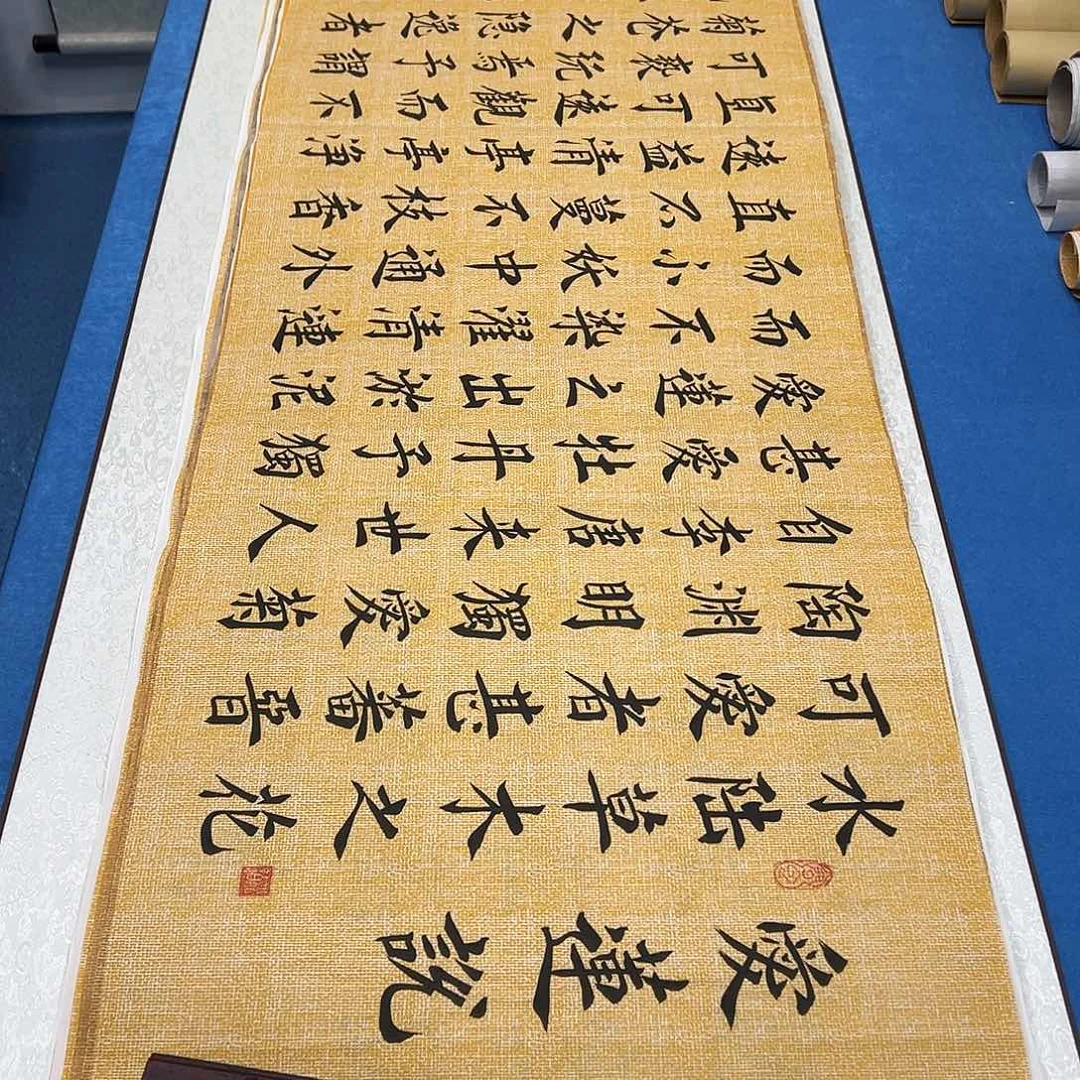 愛蓮說
水陸草木之花
可愛者甚蕃晉
陶淵明獨愛菊
自李唐来世人
甚愛牡丹予獨
愛蓮之出淤泥
而不染濯清漣
而不妖中通外
直不蔓不枝香
遠益清亭亭淨
直可遠觀而不
可褻玩焉予謂
菊花之隱逸者